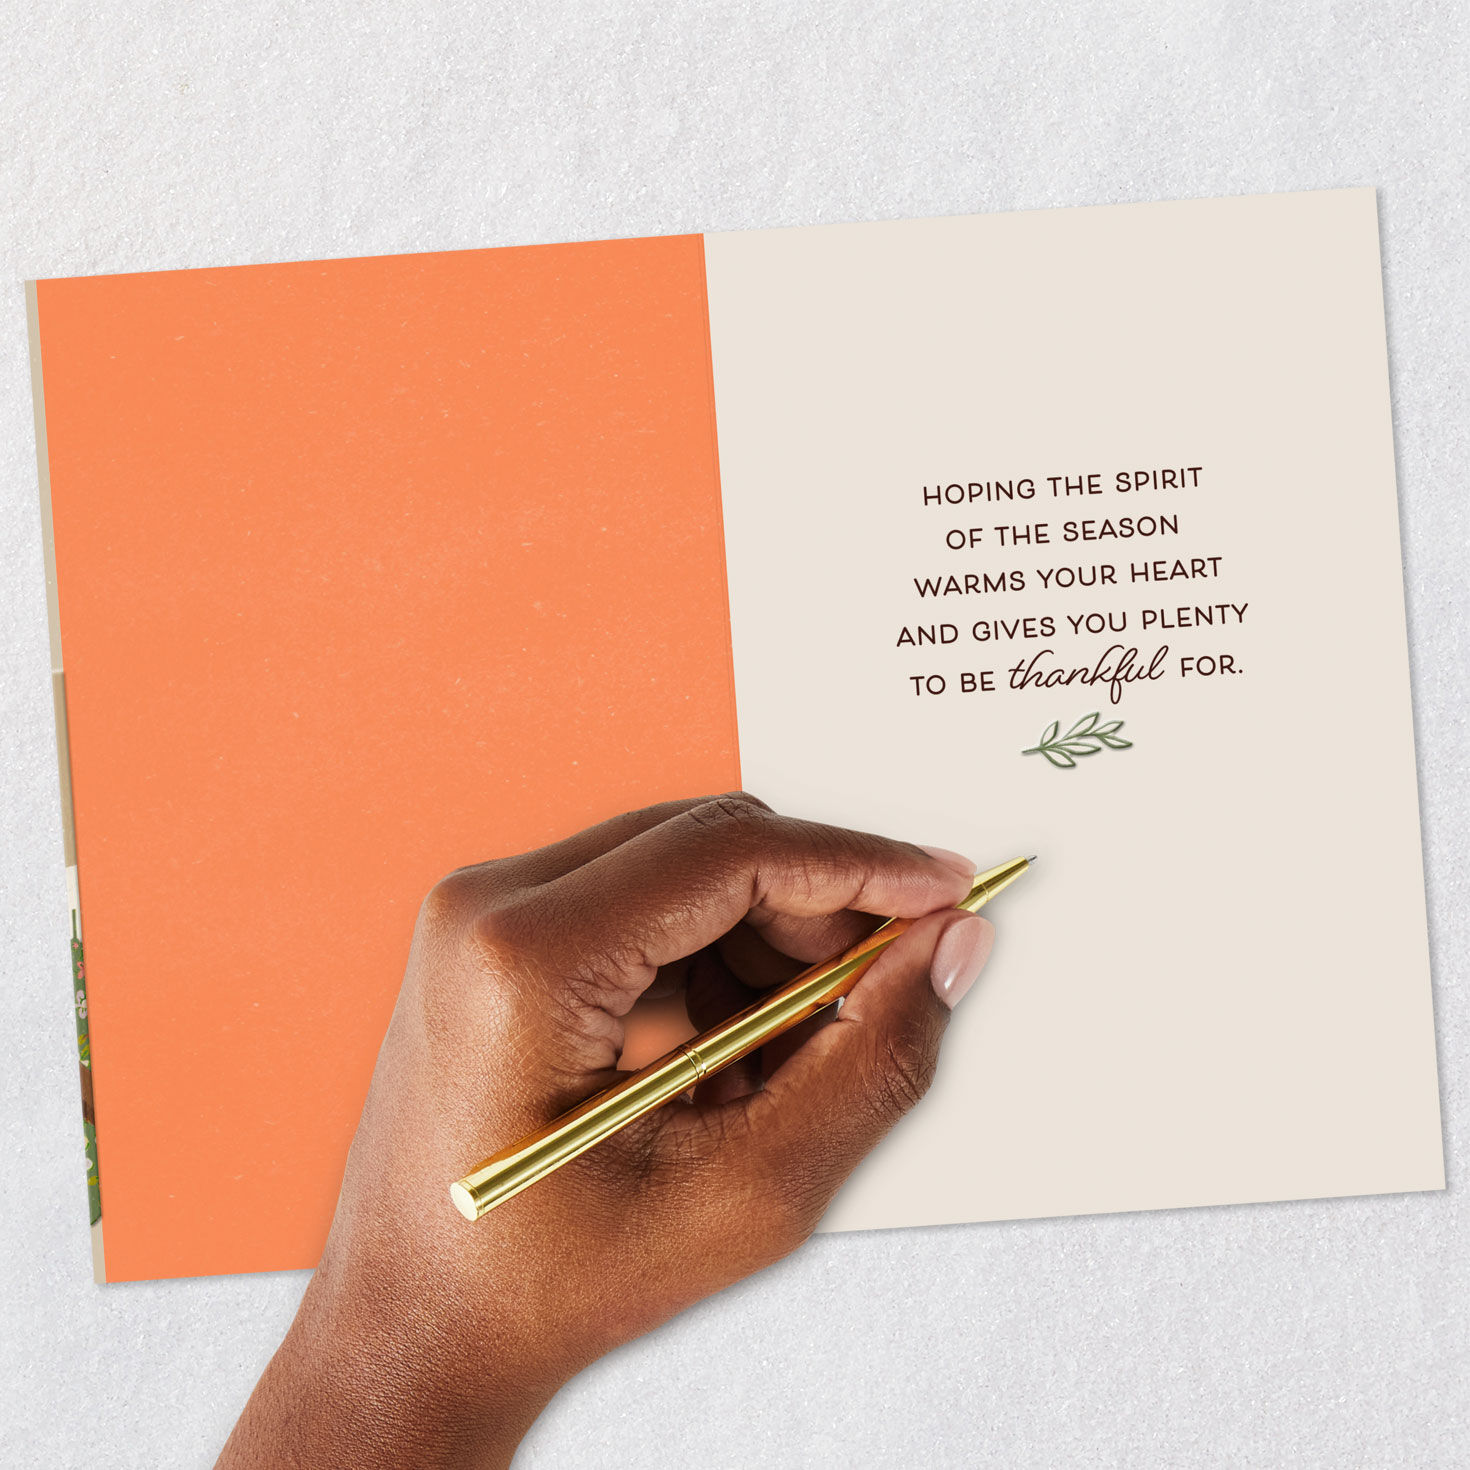 HOPING THE SPIRIT
OF THE SEASON
WARMS YOUR HEART
AND GIVES YOU PLENTY
TO BE thankful FOR.